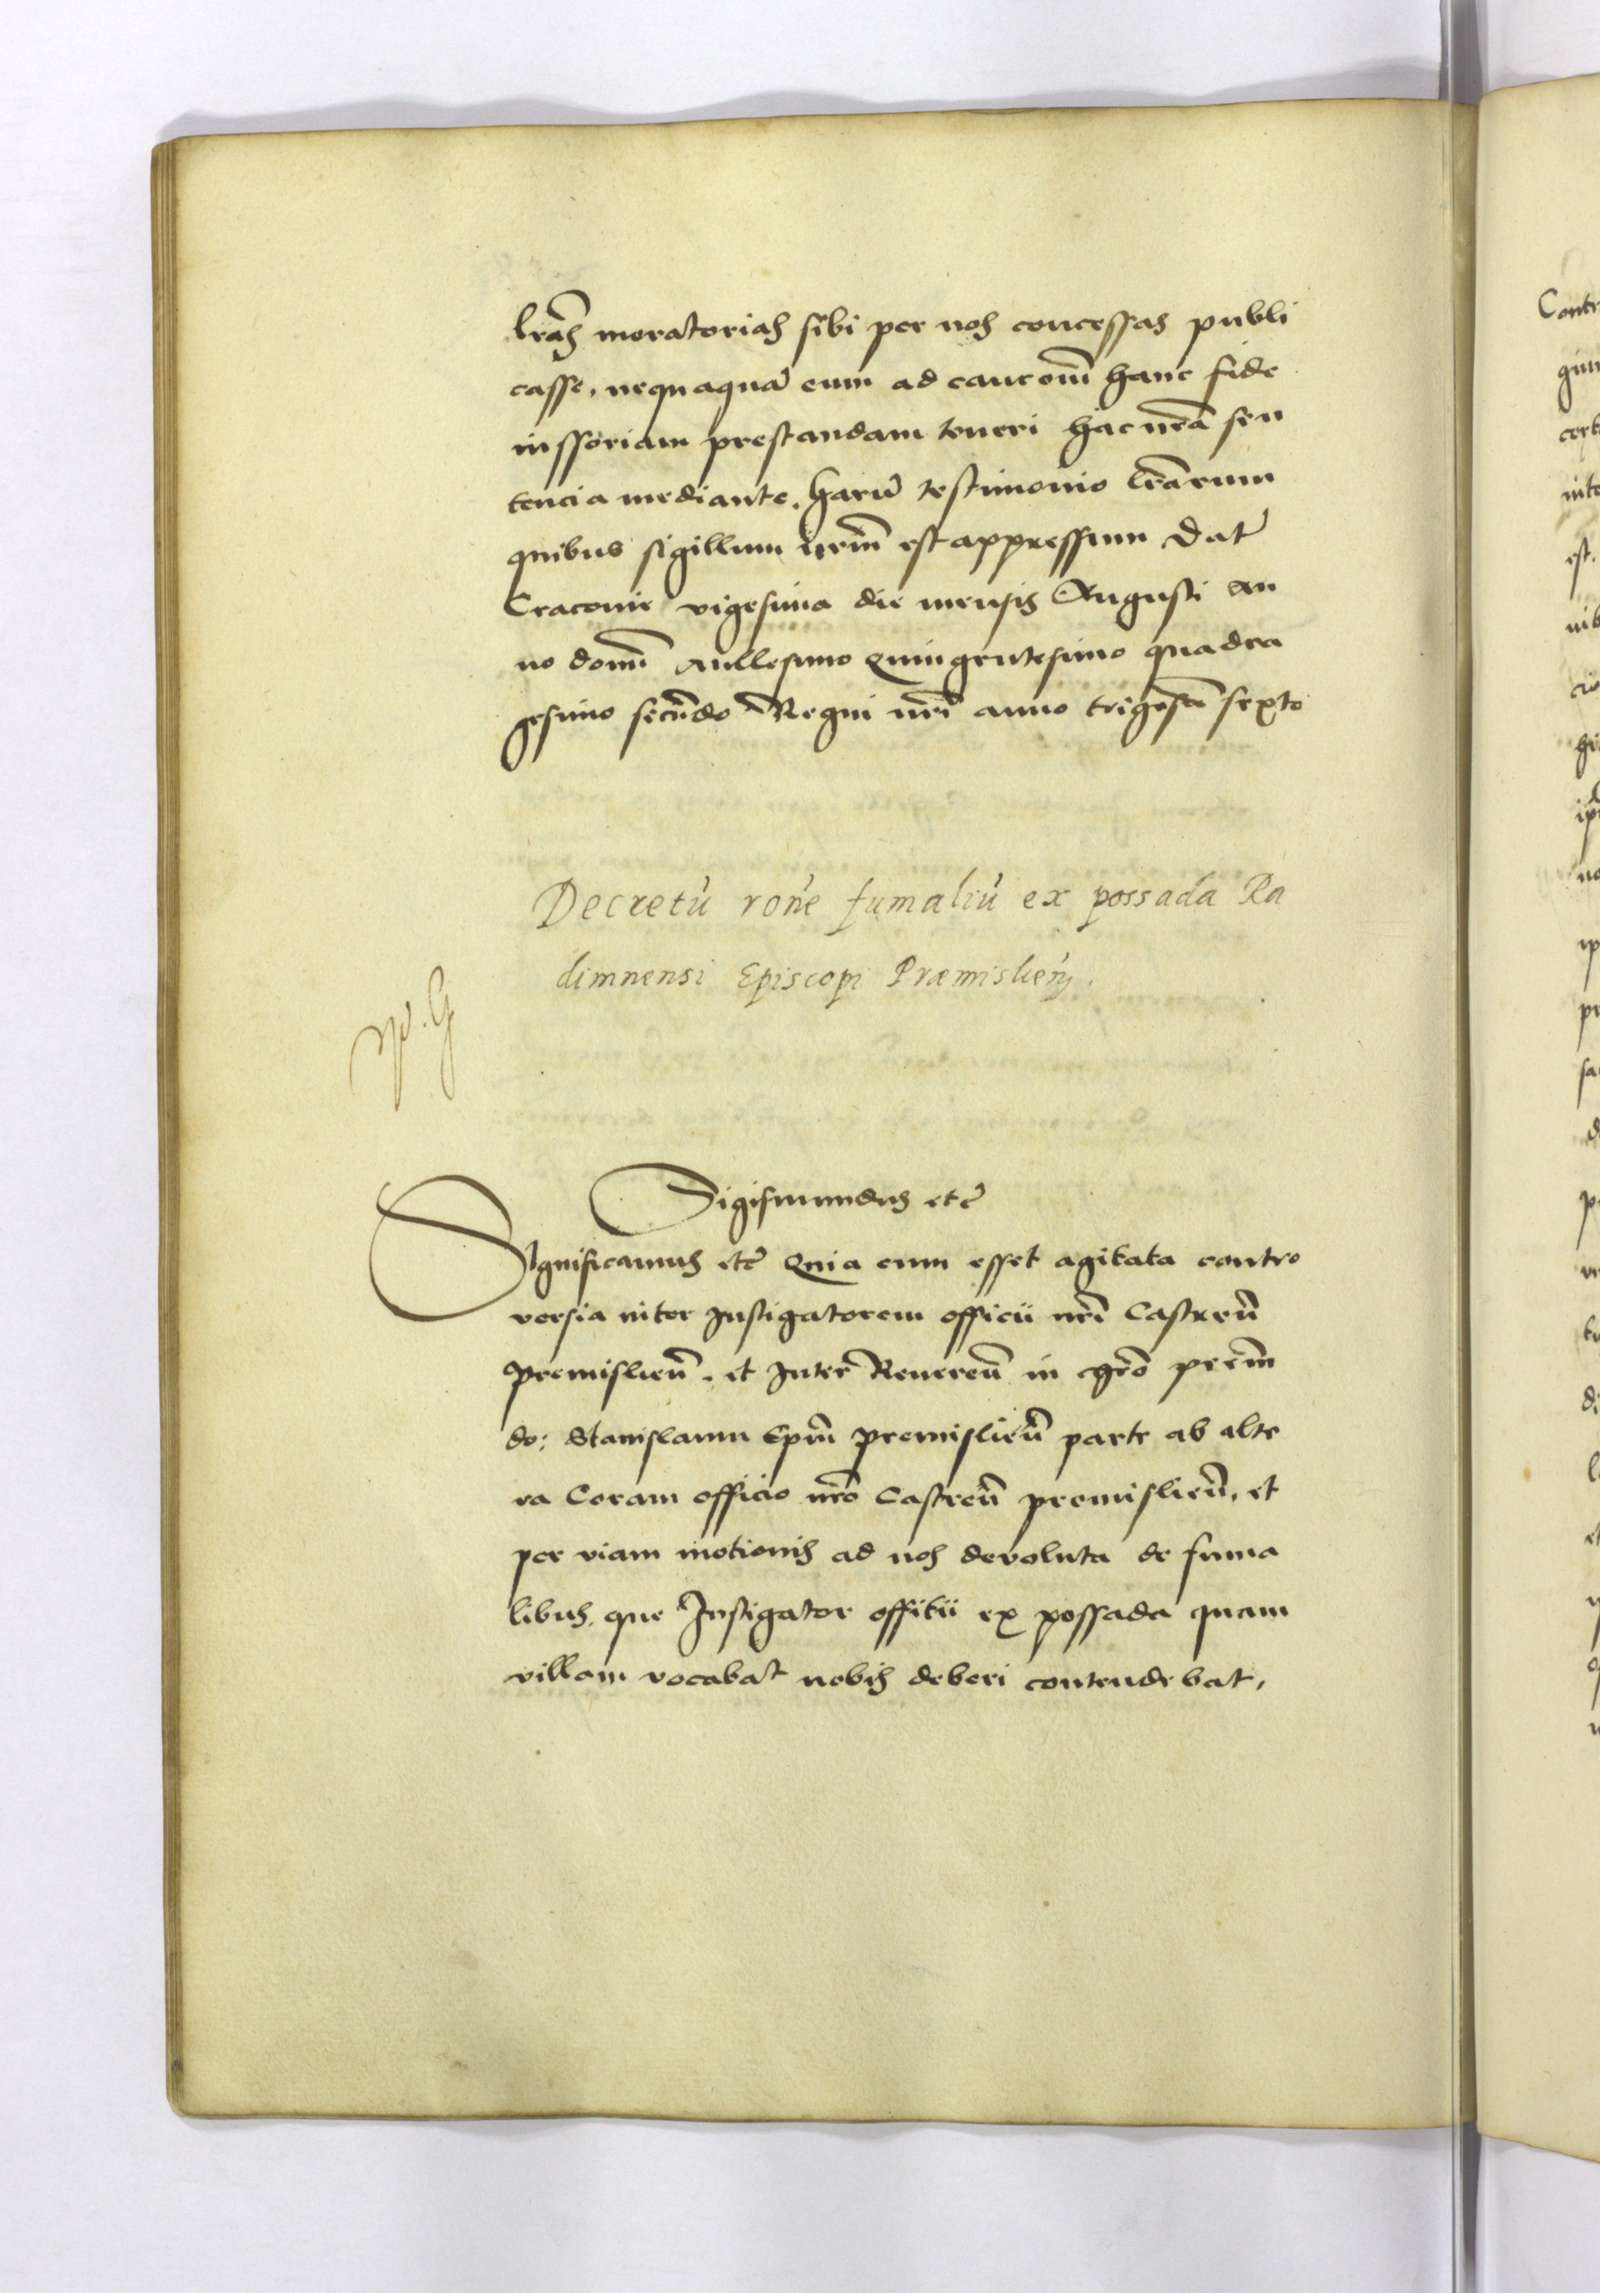 lrãs moratorias sibi per nos concessas publi
casse, nequaquã eum ad cautomͥ hanc fide
iussoriam prestandam teneri hac nrã sen
tencia mediante. harũ testimonio lrãrum
quibus sigillum nrm̃ est appressum Dat̃
Cracouie vigesima die mensis Augusti An
no domĩ Millesimo Quingentesimo quadra
gesimo secũdo Regni nrĩ anno trigesĩo sexto
Decretũ rõne fumaliũ ex possada Ra
dimnensi Episcopi Præmislień.
Sigismundus etc̃
Significamus etc̃ Quia cum esset agitata contro
versia inter Instigatorem officii nrĩ Castreñ
premislieñ. et Inter Revereñ in chrõ prem̃
do: Stanislaum Epm̃ premislieñ parte ab alte
ra Coram officio nrõ Castreñ premislieñ, et
per viam motionis ad nos devoluta de fuma
libus, que Instigator offitii ex possada quam
villam vocabat nobis deberi contendebat,